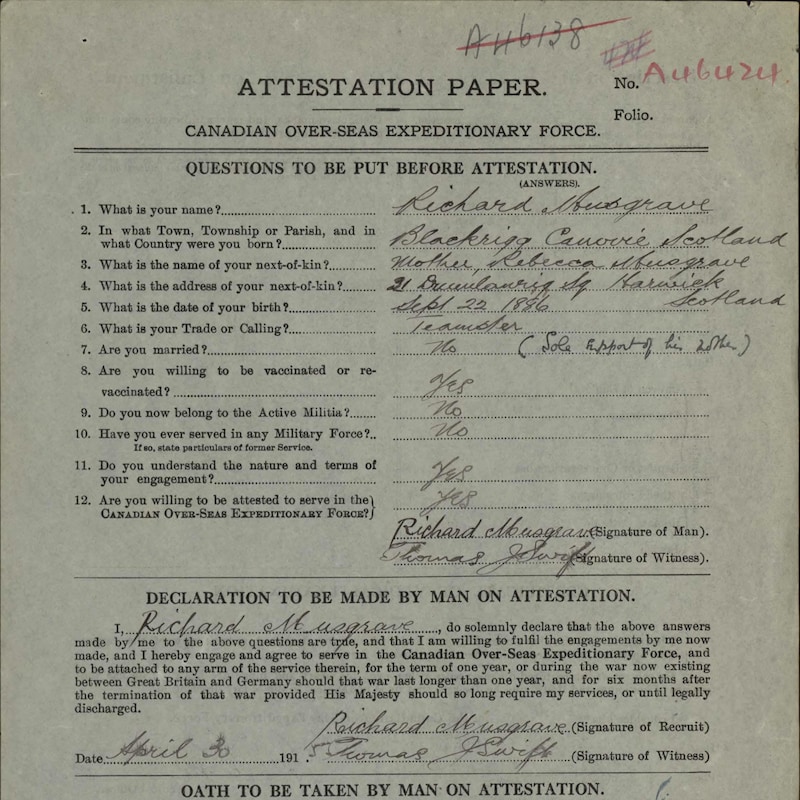 A46138
ATTESTATION PAPER.
No. A46424.
Folio.
CANADIAN OVER-SEAS EXPEDITIONARY FORCE.
QUESTIONS TO BE PUT BEFORE ATTESTATION.
(ANSWERS).
1. What is your name? Richard Musgrave
2. In what Town, Township or Parish, and in
what Country were you born? Blackrigg Canovie Scotland
3. What is the name of your next-of-kin? Mother, Rebecca Musgrave
4. What is the address of your next-of-kin? 21 Drumlanrig Sq. Harwick
Scotland
5. What is the date of your birth? Sept 22 1886
6. What is your Trade or Calling? Teamster
7. Are you married? No (Sole support of his Mother)
8. Are you willing to be vaccinated or re-
vaccinated? Yes
9. Do you now belong to the Active Militia? No
10. Have you ever served in any Military Force?.. No
If so, state particulars of former Service.
11. Do you understand the nature and terms of
your engagement? Yes
12. Are you willing to be attested to serve in the
CANADIAN OVER-SEAS EXPEDITIONARY FORCE? Yes
Richard Musgrave (Signature of Man).
Thomas J Swift (Signature of Witness).
DECLARATION TO BE MADE BY MAN ON ATTESTATION.
I, Richard Musgrave, do solemnly declare that the above answers
made by me to the above questions are true, and that I am willing to fulfil the engagements by me now
made, and I hereby engage and agree to serve in the Canadian Over-Seas Expeditionary Force, and
to be attached to any arm of the service therein, for the term of one year, or during the war now existing
between Great Britain and Germany should that war last longer than one year, and for six months after
the termination of that war provided His Majesty should so long require my services, or until legally
discharged.
Richard Musgrave (Signature of Recruit)
Date April 30 1915 Thomas J Swift (Signature of Witness)
OATH TO BE TAKEN BY MAN ON ATTESTATION.